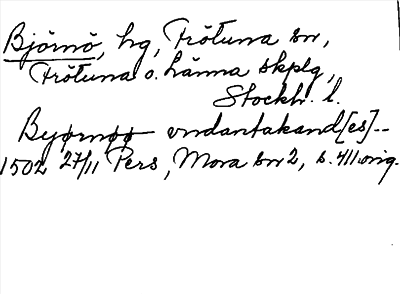 Björnö, hg, Frötuna sn,
Frötuna o. Länna skplg,
Stockh. l.
Byørnøø vndantakand[es]--
1502 27/11 Pers, Mora sn 2, s. 411 orig.